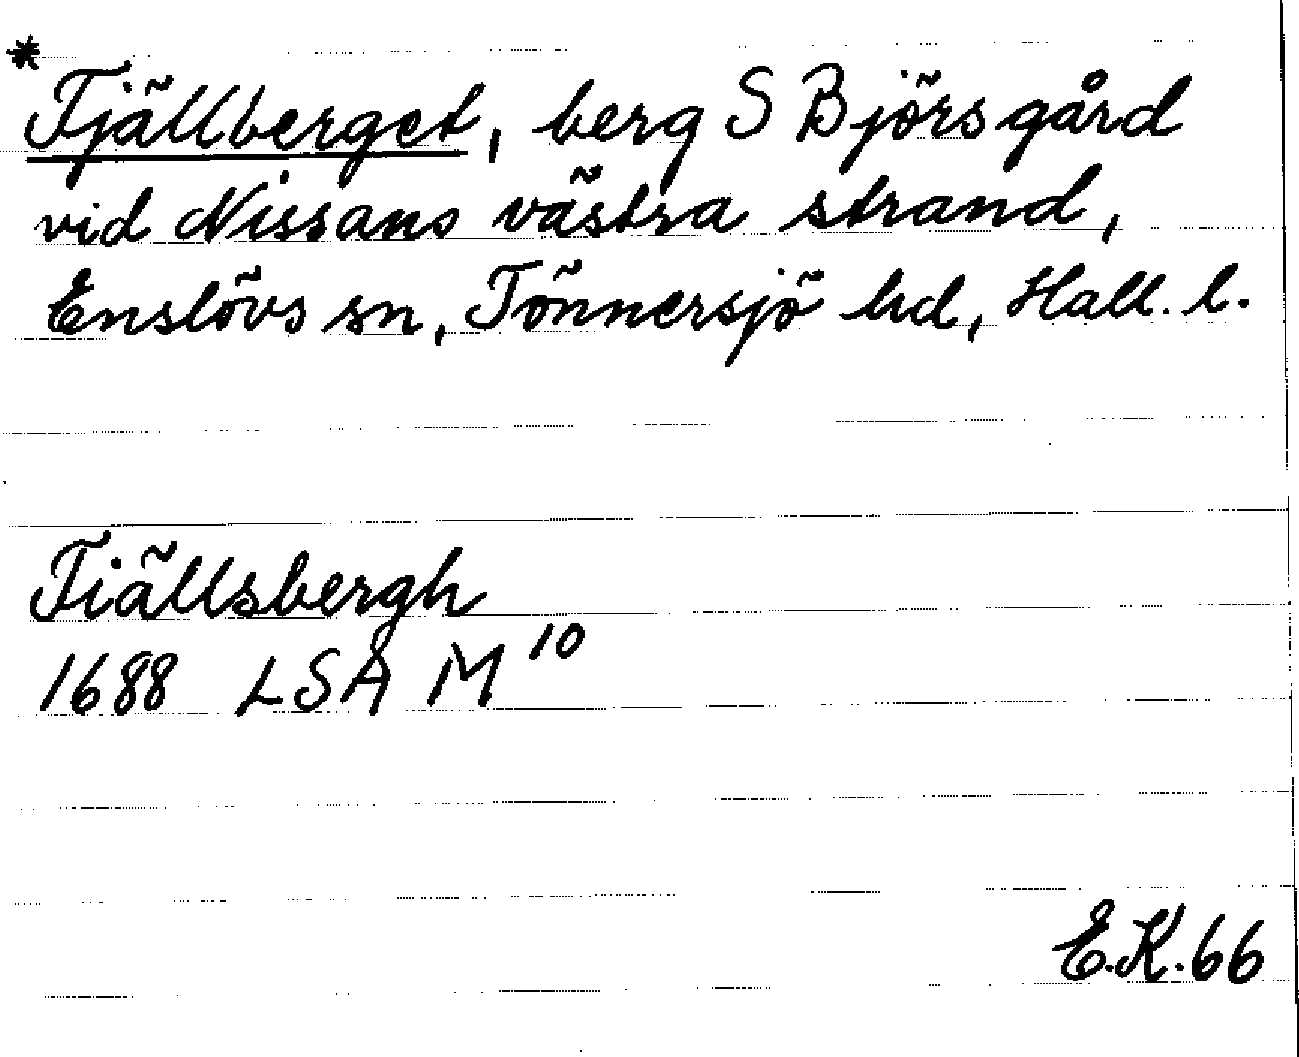 *
Fjällberget, berg S Björsgård
vid Nissans västra strand,
Enslövs sn, Tönnersjö hd, Hall. l.
Fiällsbergh
1688 LSA M¹⁰
E.K.66